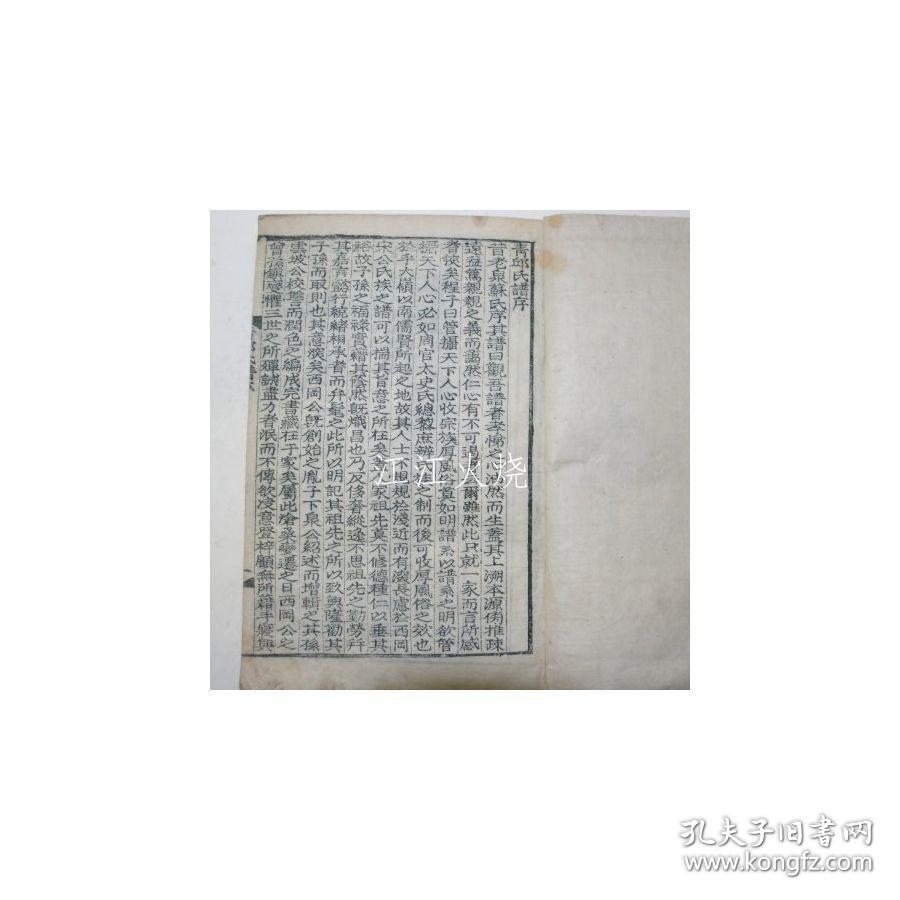 靑邱氏譜序
昔老泉蘇氏序其譜曰觀吾譜者孝悌之心油然而生蓋其上溯本源傍推疎
遠益篤親親之義而藹然仁心有不可遏爾雖然此只就一家而言所感
者狹矣程子曰管攝天下人心收宗族厚風俗莫如明譜系以譜系之明欲管
攝天下人心必如周官太史氏總敍庶之制而後可收厚風俗之效也
於乎大嶺以南儒賢所起之地故其人士不規規於淺近而有深長慮於西岡
宋公氏族之譜可以揣其旨意之所在矣家祖先莫不修德種仁以垂其
裕故子孫之福祿實藉其蔭然旣熾昌也乃反侈奢縱逸不思祖先之勤勞幷
其嘉言懿行統緖相承者而弁髦之此所以明記其祖先之所以致興隆勸其
子孫而取則也其意深矣西岡公旣創始之胤子下泉公紹述而增輯之其孫
雲坡公校讐而潤色之編成完書藏在于家矣屬此滄桑變遷之日西岡公之
曾孫鎭懼三世之所殫誠盡力者泯而不傳欲決意登梓顧無所藉手寢與
江江火烧
孔夫子旧书网
www.kongfz.com